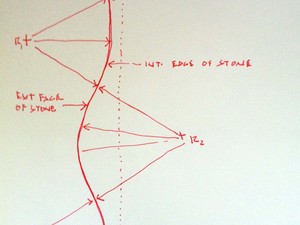 R1
INT. EDGE OF STONE
EXT EDGE
OF STONE
R2